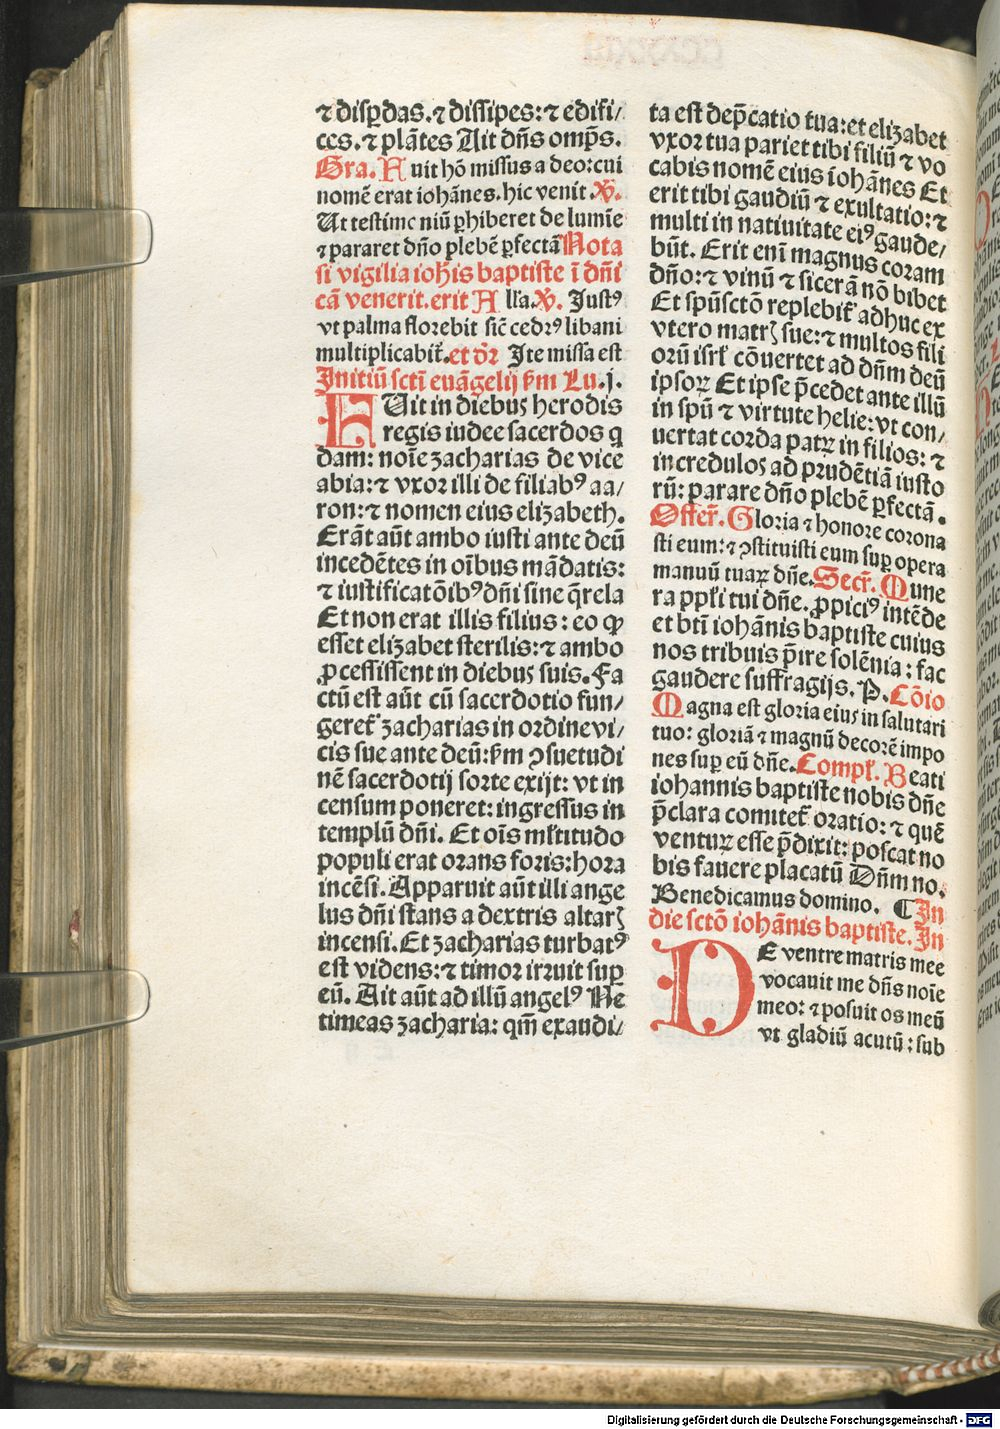 ⁊ disꝑdas. ⁊ dissipes: ⁊ edifi/
ces. ⁊ plãtes Ait dñs omp̃s.
Gra. Fuit hõ missus a deo: cui
nomẽ erat iohãnes. hic venit ℣.
Ut testimo niũ ꝑhiberet de lumĩe
⁊ pararet dño plebẽ ꝑfectã Nota
si vigilia ioh̃is baptiste ĩ dñi
cã venerit. erit All'a. ℣. Justꝰ
vt palma florebit sic̃ cedrꝰ libani
multiplicabit᷑. et dr̃ Ite missa est
Initiũ sctĩ euãgelij ẜm Lu. j.
FUit in diebus herodis
regis iudee sacerdos q
dam: noĩe zacharias de vice
abia: ⁊ vxor illi de filiabꝰ aa/
ron: ⁊ nomen eius elizabeth.
Erãt aũt ambo iusti ante deũ
incedẽtes in oĩbus mãdatis:
⁊ iustificatõibꝰ dñi sine q̃rela
Et non erat illis filius: eo ꝙ
esset elizabet sterilis: ⁊ ambo
ꝓcessissent in diebus suis. Fa
ctũ est aũt cũ sacerdotio fun/
geret᷑ zacharias in ordine vi/
cis sue ante deũ: ẜm ꝯsuetudi
nẽ sacerdotij sorte exijt: vt in
censum poneret: ingressus in
templũ dñi. Et oĩs ml'titudo
populi erat orans foris: hora
incẽsi. Apparuit aũt illi ange
lus dñi stans a dextris altarꝭ
incensi. Et zacharias turbatꝰ
est videns: ⁊ timor irruit suꝑ
eũ. Ait aũt ad illũ angelꝰ Ne
timeas zacharia: qm̃ exaudi/
ta est dep̃catio tua: et elizabet
vxor tua pariet tibi filiũ ⁊ vo
cabis nomẽ eius iohãnes Et
erit tibi gaudiũ ⁊ exultatio: ⁊
multi in natiuitate eiꝰ gaude/
bũt. Erit enĩ magnus coram
dño: ⁊ vinũ ⁊ sicerã nõ bibet
Et spũsctõ replebit᷑ adhuc ex
vtero matrꝭ sue: ⁊ multos fili
orũ isrl' cõuertet ad dñm deũ
ipsoꝝ Et ipse p̃cedet ante illũ
in spũ ⁊ virtute helie: vt con/
uertat corda patꝝ in filios: ⁊
incredulos ad prudẽtiã iusto
rũ: parare dño plebẽ ꝑfectã.
Offer̃. Gloria ⁊ honore corona
sti eum: ⁊ ꝯstituisti eum suꝑ opera
manuũ tuaꝝ dñe. Secr̃. Mune
ra ppl'i tui dñe. ꝓpiciꝰ intẽde
et btĩ iohãnis baptiste cuius
nos tribuis p̃ire solẽnia: fac
gaudere suffragijs. P. Cõio
Magna est gloria eius in salutari
tuo: gloriã ⁊ magnũ decorẽ impo
nes suꝑ eũ dñe. Compl'. Beati
iohannis baptiste nobis dñe
p̃clara comitet᷑ oratio: ⁊ quẽ
ventuꝝ esse p̃dixit: poscat no
bis fauere placatũ Dñm no.
Benedicamus domino. ¶ In
die sctõ iohãnis baptiste. In
DE ventre matris mee
vocauit me dñs noĩe
meo: ⁊ posuit os meũ
vt gladiũ acutũ: sub
Digitalisierung gefördert durch die Deutsche Forschungsgemeinschaft - DFG